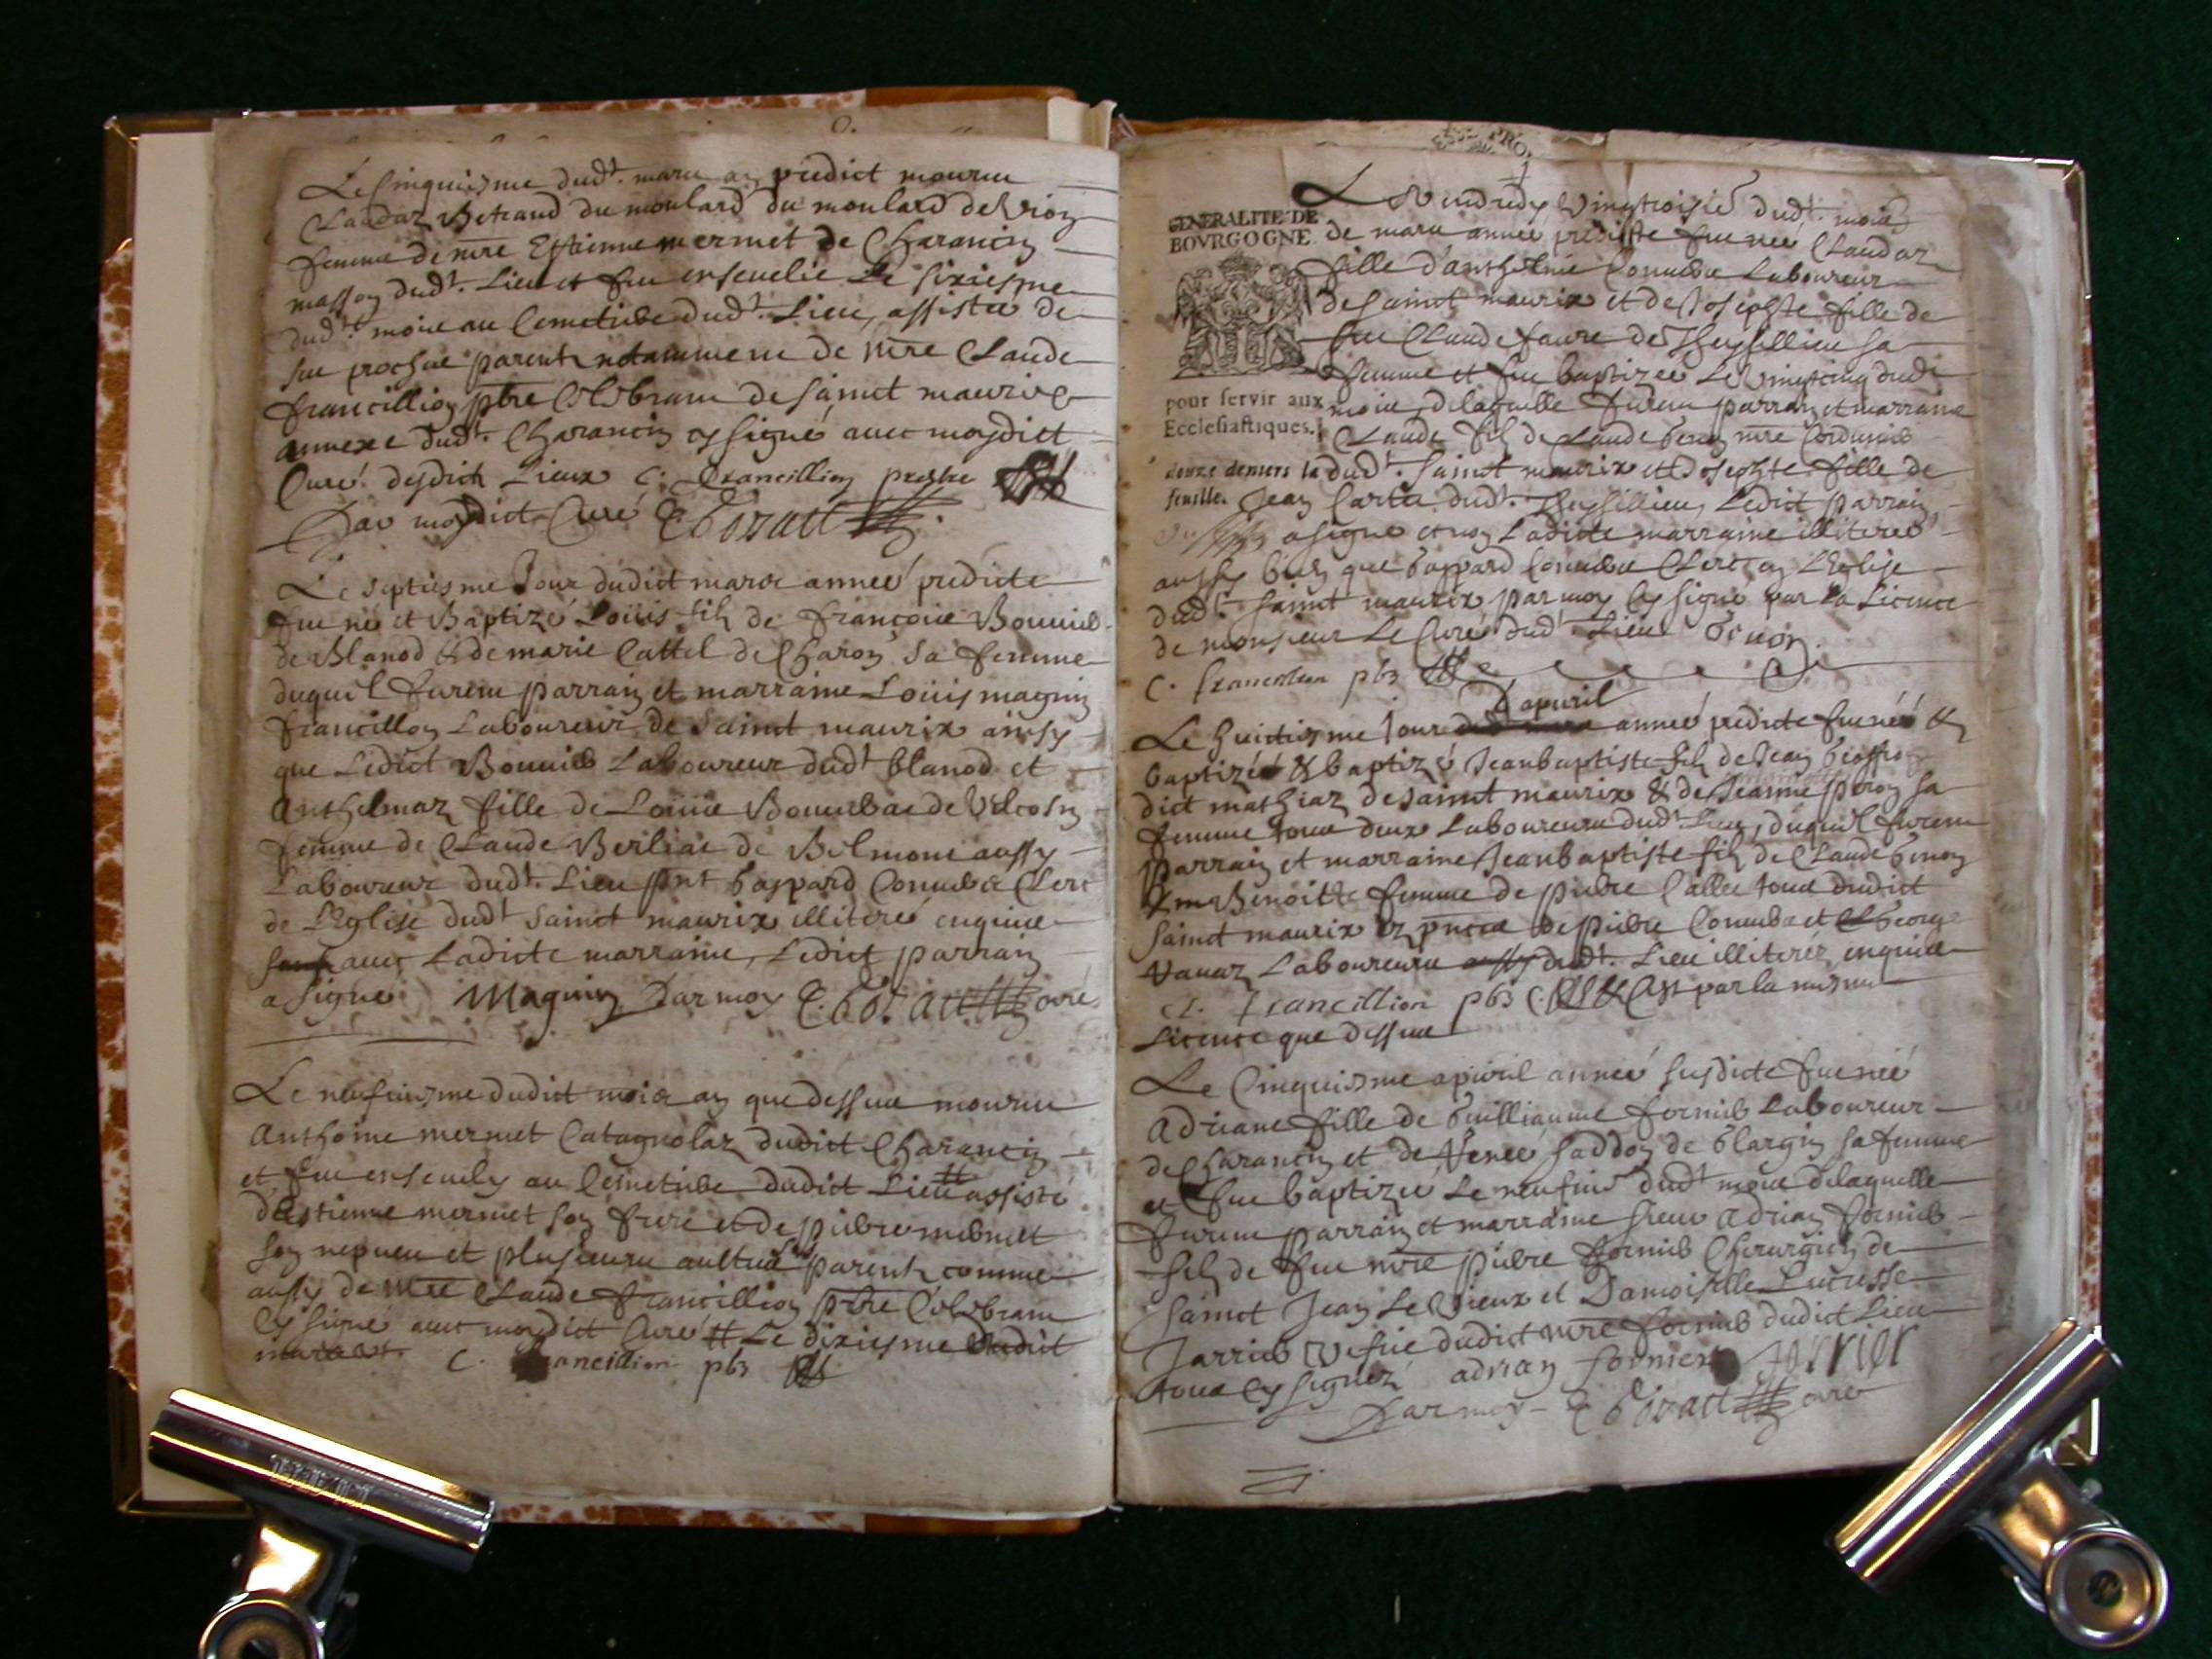 Le cinquiesme dud.t mars an predict mourut
Claudaz Betrand du moulard du moulard de Vion
femme de mre Estienne mermet de Charancin
masson dud.t Lieu et fut ensevelie Le sixiesme
dud.t mois au Cemetiere dud.t Lieu, assistee de
ses proches parents notamment de mre Claude
francillion ptre Celebrant de sainct maurix
annexe dud.t Charancin cy signé avec moydict
Curé desdicts Lieux C. francillion prestre
Par moydict Curé
Le septiesme Jour dudict mars année predicte
fut né et Baptizé Loüis fils de françois Bouvier
de Blanod & de marie Cattel de Charon sa femme
duquel furent parrain et marraine Loüis magnin
francillon Laboureur de sainct maurix ainsy
que Ledict Bouvier Laboureur dud.t blanod et
Anthelmaz fille de Loüis
femme de Claude Berliat de Belmont aussy
Laboureur dud.t Lieu pnt gaspard Convert Clerc
de L'Eglise dud.t sainct maurix illiteré enquis
avec Ladicte marraine, Ledict parrain
a signé Magnin Par moy curé
Le neufviesme dudict mois an que dessus mourut
Anthoine mermet Catagnolaz dudict Charancin
et fut ensevely au Cemetiere dudict Lieu # assisté
d'Estienne mermet son frere et de pierre mermet
son nepveu et plusieurs aultres parents comme
aussy de mre Claude francillion ptre Celebrant
cy signé avec moydict Curé # Le dixiesme dudict
C. francillion pbr
GENERALITE DE
BOVRGOGNE.
pour servir aux
Ecclesiastiques.
douze deniers la
feuille.
Le Vendredy Vingtroisie dud.t mois
de mars année predicte fut née Claudaz
fille d'anthelme Laboureur
de sainct maurix et de Josephte fille de
feu Claude favre de sa
femme et fut baptizée Le Vingtcinq dudt
mois, de laquelle furent parrain et marraine
Claude fils de Claude genon mre Cordonnier
dud.t sainct maurix et Josephte fille de
Jean dud.t Ledict parrain
a signé et non Ladicte marraine illiterée
aussy bien que gaspard Clerc en L'Eglise
dud.t sainct maurix par moy cy signé par la Licence
de monsieur Le Curé dud.t Lieu genon
C. francillion pbr
D'apvril
Le huictiesme Jour année predicte fut né &
baptizé & baptizé Jeanbaptiste fils de Jean
dict mathiaz de sainct maurix & de Jeanne peron sa
femme tous deux Laboureurs dud.t Lieu, duquel furent
parrain et marraine Jeanbaptiste fils de Claude genon
Benoitte femme de pierre Callet tous dudict
sainct maurix de pierre et George
Laboureurs dud.t Lieu illiterez enquis
C. francillion pbr par la mesme
Licence que dessus
Le Cinquiesme apvril année susdicte fut née
Adriane fille de Guilliaume fornier Laboureur
de Charancin et de saddon de sa femme
et fut baptizée Le neufvie dud.t mois de laquelle
furent parrain et marraine sieur Adrian fornier
fils de feu mre pierre fornier Chirurgien de
sainct Jean Le Vieux et Damoiselle Lucresse
Jarrier Vefve dudict mre fornier dudict Lieu
tous cy signez adrian fornier Jarrier
Par moy curé